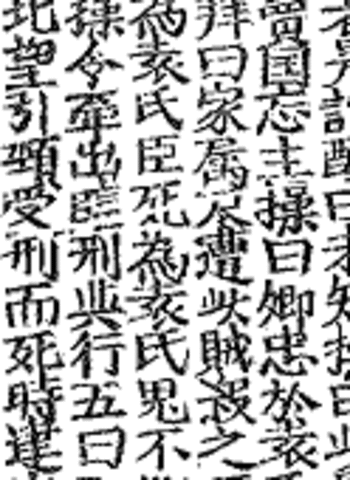 賣國忘主操曰卿忠於袁
拜曰家屬今遭此賊殺之
為袁氏臣死為袁氏鬼不
操令牽出臨刑典行五曰
北望引頸受刑而死時建